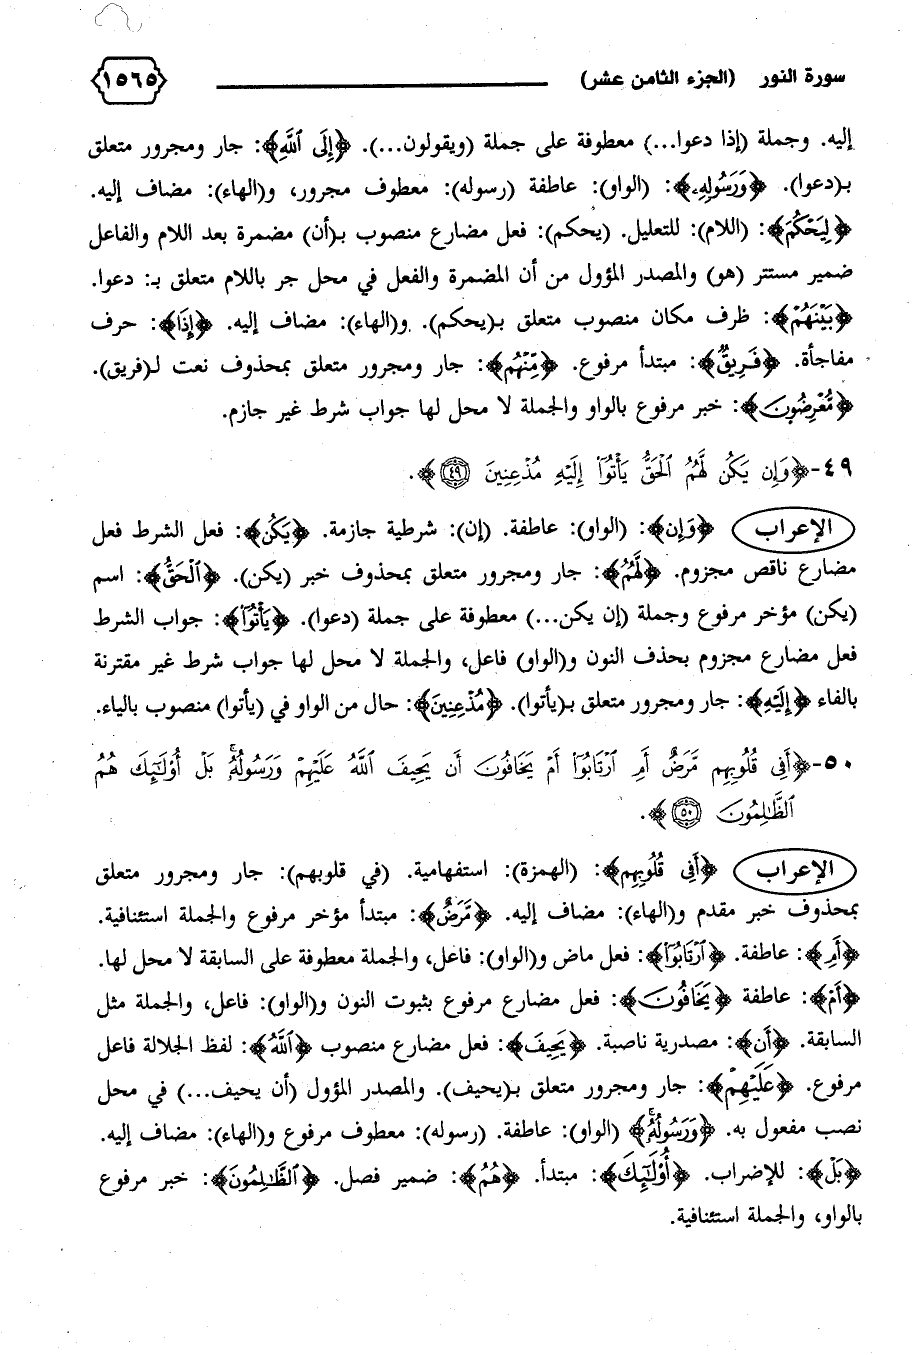 سورة النور (الجزء الثامن عشر) ١٥٦٥
إليه. وجملة (إذا دعوا...) معطوفة على جملة (ويقولون...). ﴿إِلَى ٱللَّهِ﴾: جار ومجرور متعلق
بـ(دعوا). ﴿وَرَسُولِهِۦ﴾: (الواو): عاطفة (رسوله): معطوف مجرور، و(الهاء): مضاف إليه.
﴿لِيَحْكُمَ﴾: (اللام): للتعليل. (يحكم): فعل مضارع منصوب بـ(أن) مضمرة بعد اللام والفاعل
ضمير مستتر (هو) والمصدر المؤول من أن المضمرة والفعل في محل جر باللام متعلق بـ: دعوا.
﴿بَيْنَهُمْ﴾: ظرف مكان منصوب متعلق بـ(يحكم). و(الهاء): مضاف إليه. ﴿إِذَا﴾: حرف
مفاجأة. ﴿فَرِيقٌ﴾: مبتدأ مرفوع. ﴿مِّنْهُم﴾: جار ومجرور متعلق بمحذوف نعت لـ(فريق).
﴿مُّعْرِضُونَ﴾: خبر مرفوع بالواو والجملة لا محل لها جواب شرط غير جازم.
٤٩-﴿وَإِن يَكُن لَّهُمُ ٱلْحَقُّ يَأْتُوٓا۟ إِلَيْهِ مُذْعِنِينَ ٤٩﴾.
الإعراب ﴿وَإِن﴾: (الواو): عاطفة. (إن): شرطية جازمة. ﴿يَكُن﴾: فعل الشرط فعل
مضارع ناقص مجزوم. ﴿لَّهُمُ﴾: جار ومجرور متعلق بمحذوف خبر (يكن). ﴿ٱلْحَقُّ﴾: اسم
(يكن) مؤخر مرفوع وجملة (إن يكن...) معطوفة على جملة (دعوا). ﴿يَأْتُوٓا۟﴾: جواب الشرط
فعل مضارع مجزوم بحذف النون و(الواو) فاعل، والجملة لا محل لها جواب شرط غير مقترنة
بالفاء ﴿إِلَيْهِ﴾: جار ومجرور متعلق بـ(يأتوا). ﴿مُذْعِنِينَ﴾: حال من الواو في (يأتوا) منصوب بالياء.
٥٠-﴿أَفِى قُلُوبِهِم مَّرَضٌ أَمِ ٱرْتَابُوٓا۟ أَمْ يَخَافُونَ أَن يَحِيفَ ٱللَّهُ عَلَيْهِمْ وَرَسُولُهُۥۚ بَلْ أُو۟لَٰٓئِكَ هُمُ
ٱلظَّٰلِمُونَ ٥٠﴾.
الإعراب ﴿أَفِى قُلُوبِهِم﴾: (الهمزة): استفهامية. (في قلوبهم): جار ومجرور متعلق
بمحذوف خبر مقدم و(الهاء): مضاف إليه. ﴿مَّرَضٌ﴾: مبتدأ مؤخر مرفوع والجملة استئنافية.
﴿أَمِ﴾: عاطفة. ﴿ٱرْتَابُوٓا۟﴾: فعل ماض و(الواو): فاعل، والجملة معطوفة على السابقة لا محل لها.
﴿أَمْ﴾: عاطفة ﴿يَخَافُونَ﴾: فعل مضارع مرفوع بثبوت النون و(الواو): فاعل، والجملة مثل
السابقة. ﴿أَن﴾: مصدرية ناصبة. ﴿يَحِيفَ﴾: فعل مضارع منصوب ﴿ٱللَّهُ﴾: لفظ الجلالة فاعل
مرفوع. ﴿عَلَيْهِمْ﴾: جار ومجرور متعلق بـ(يحيف). والمصدر المؤول (أن يحيف...) في محل
نصب مفعول به. ﴿وَرَسُولُهُۥۚ﴾ (الواو): عاطفة. (رسوله): معطوف مرفوع و(الهاء): مضاف إليه.
﴿بَلْ﴾: للإضراب. ﴿أُو۟لَٰٓئِكَ﴾: مبتدأ. ﴿هُمُ﴾: ضمير فصل. ﴿ٱلظَّٰلِمُونَ﴾: خبر مرفوع
بالواو، والجملة استئنافية.